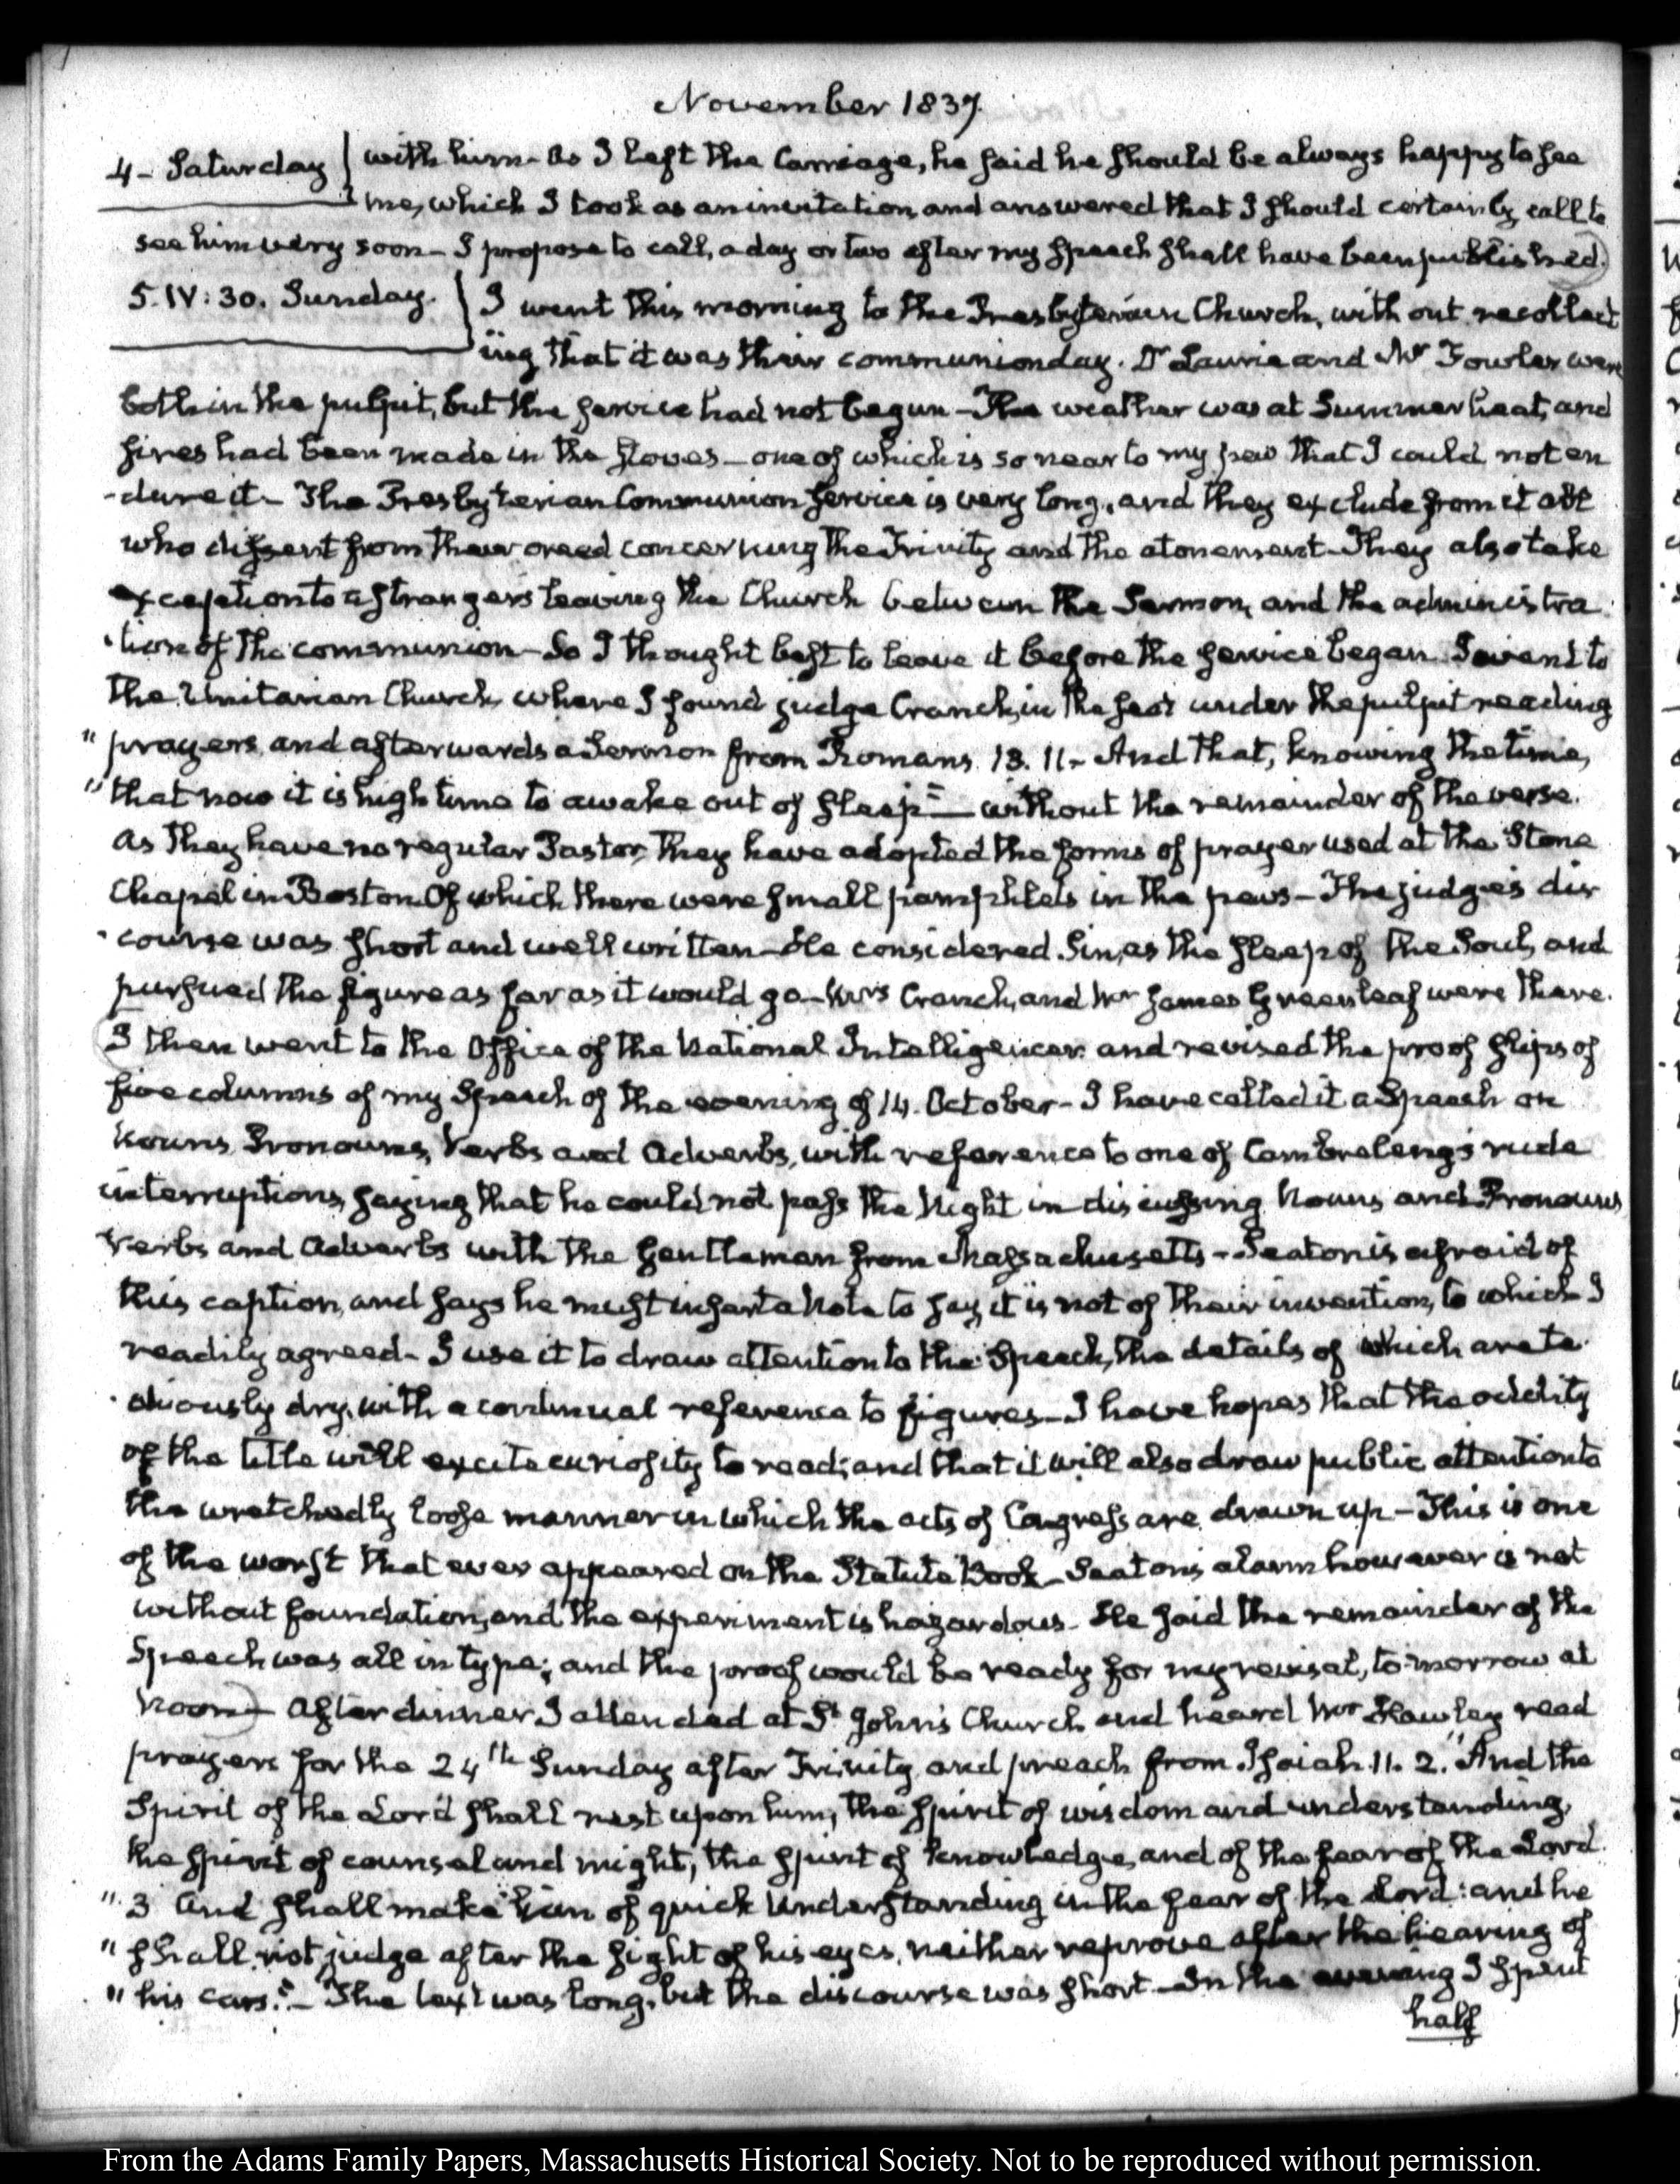 November 1837.
4 - Saturday } with him - As I left the Carriage, he said he should be always happy to see
me, which I took as an invitation, and answered that I should certainly call to
see him very soon - I propose to call, a day or two after my Speech shall have been published.
5. IV:30. Sunday. } I went this morning to the Presbyterian Church, without recollect
ing that it was their communion day. Dr Laurie and Mr Fowler were
both in the pulpit, but the service had not begun - The weather was at Summer heat, and
fires had been made in the stoves - one of which is so near to my pew that I could not en
-dure it - The Presbyterian Communion service is very long, and they exclude from it all
who dissent from their creed concerning the Trinity and the atonement - They also take
exception to strangers leaving the Church between the Sermon, and the administra
tion of the communion - So I thought best to leave it before the service began I went to
the Unitarian Church, where I found judge Cranch, in the seat under the pulpit reading
" prayers, and afterwards a Sermon from Romans 13. 11 - And that, knowing the time,
" that now it is high time to awake out of sleep" - without the remainder of the verse.
As they have no regular Pastor, they have adopted the forms of prayer used at the Stone
Chapel in Boston Of which there were small pamphlets in the pews - The judge's dis
course was short and well written - He considered Sin, as the sleep of the Soul, and
pursued the figure as far as it would go - Mrs Cranch, and Mr James Greenleaf were there.
I then went to the Office of the National Intelligencer and revised the proof slips of
five columns of my Speech of the evening of 14. October - I have called it a Speech on
Nouns, Pronouns, Verbs and Adverbs, with reference to one of Cambreleng's rude
interruptions, saying that he could not pass the Night in discussing Nouns and Pronouns
Verbs and Adverbs with the gentleman from Massachusetts - Seaton is afraid of
this caption, and says he must insert a Note to say it is not of their invention, to which I
readily agreed - I use it to draw attention to the Speech, the details of which are te
diously dry, with a continual reference to figures - I have hopes that the oddity
of the title will excite curiosity to read; and that it will also draw public attention to
the wretchedly loose manner in which the acts of Congress are drawn up - This is one
of the worst that ever appeared on the Statute Book - Seaton's alarm however is not
without foundation, and the experiment is hazardous - He said the remainder of the
Speech was all in type; and the proof would be ready for my revisal, to-morrow at
Noon - After dinner I attended at St John's Church and heard Mr Hawley read
prayers for the 24th Sunday after Trinity, and preach from Isaiah 11. 2. "And the
Spirit of the Lord shall rest upon him, the spirit of wisdom and understanding,
the spirit of counsel and might, the spirit of knowledge, and of the fear of the Lord.
" 3 And shall make him of quick understanding in the fear of the Lord: and he
" shall not judge after the sight of his eyes, neither reprove after the hearing of
" his ears." - The text was long, but the discourse was short - In the evening I spent
half
From the Adams Family Papers, Massachusetts Historical Society. Not to be reproduced without permission.